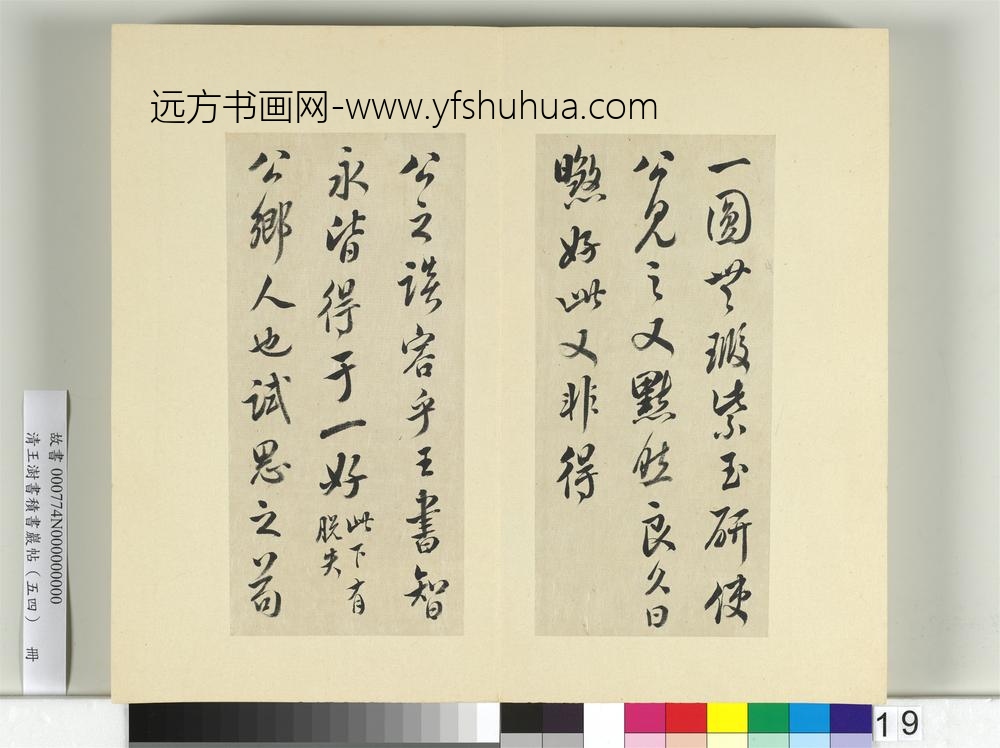 远方书画网-www.yfshuhua.com
一圆無瑕紫玉研使
公見之又默然良久曰
憨好此又非得
公之談容乎王書智
永皆得于一好此下有脱失
公鄉人也試思之苟
故書 000774N000000000
清王澍書積書巖帖（五四） 冊
19